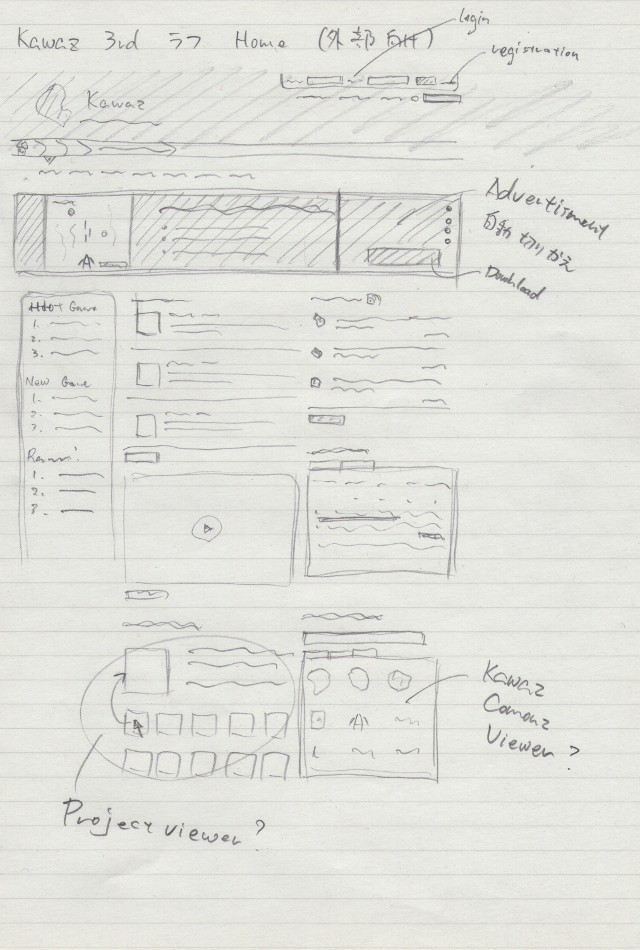 Kawaz 3rd ラフ Home (外部向け)
login
registration
Kawaz
Advertisment
自動切りかえ
Download
Hot Game
1.
2.
3.
New Game
1.
2.
3.
1.
2.
3.
Kawaz
Comonz
Viewer?
Project viewer?